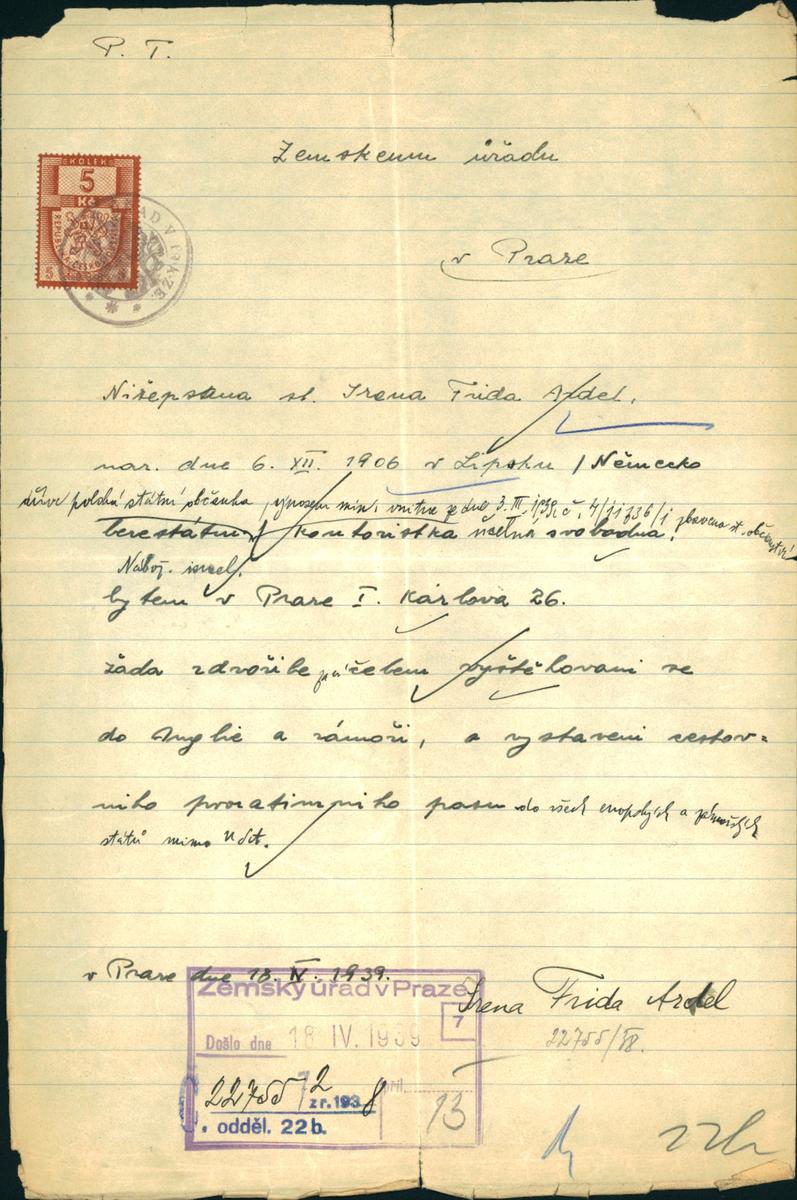 P. T.
KOLEK
5
Kč
Zemskemu úřadu
v Praze
Nižepsana sl. Irena Frida Ardel,
nar. dne 6. XII. 1906 v Lipsku / Německo
dříve polská státní občanka, výnosem min. vnitra ze dne 3. III. 1939 č. 4/11736/1 zbavena st. občanství
bezestátni / kontoristka účetná svobodna!
Nábož. israel.
bytem v Praze I. Karlova 26.
žáda zdvořile za účelem vyštěhovani se
do Anglie a zámoři, a vystaveni cestov=
niho prozatimniho pasu do všech evropských a zámořských
států mimo
v Praze dne 18. IV. 1939.
Irena Frida Ardel
22755/VII.
Zemský úřad v Praze
7
Došlo dne 18 IV. 1939
22755/2 z r. 193 8
příl.
13
odděl. 22b.
22b